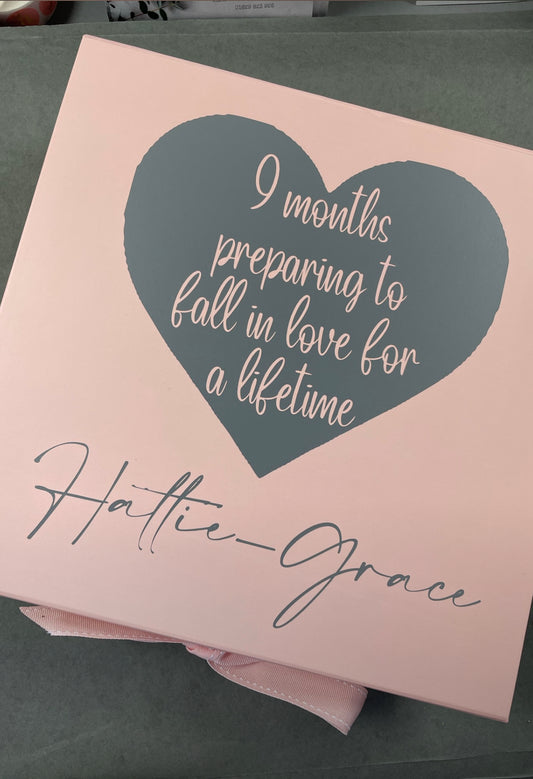 9 months
preparing to
fall in love for
a lifetime
Hattie-Grace